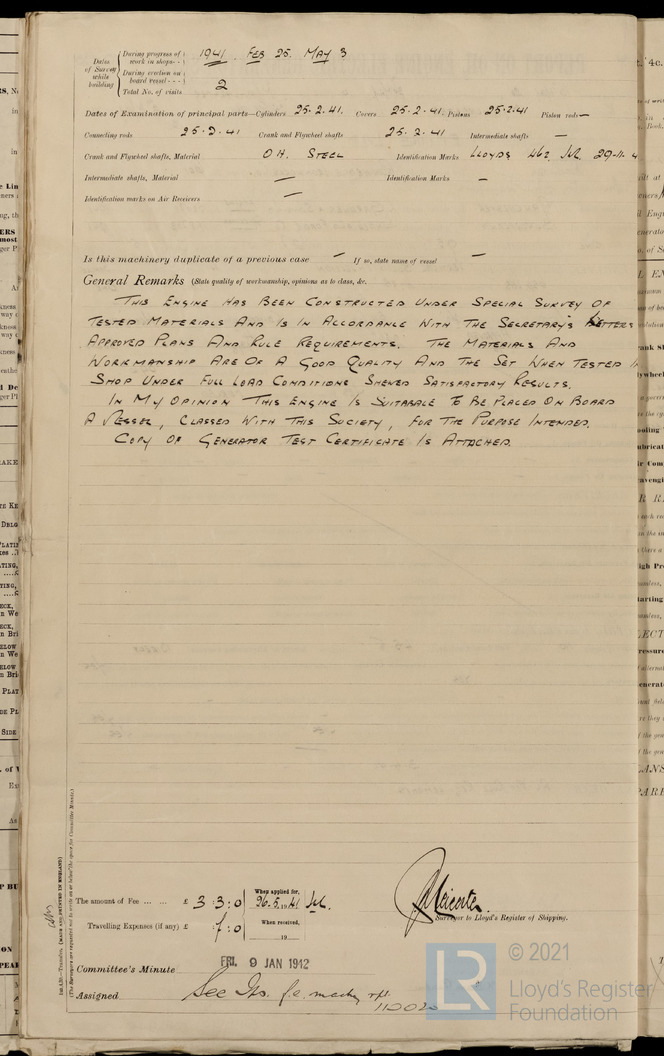 Dates of Survey while building
During progress of work in shops-- 1941 FEB 25. MAY 3
During erection on board vessel---
Total No. of visits 2
Dates of Examination of principal parts—Cylinders 25.2.41. Covers 25.2.41 Pistons 25.2.41 Piston rods —
Connecting rods 25.2.41 Crank and Flywheel shafts 25.2.41 Intermediate shafts —
Crank and Flywheel shafts, Material O.H. STEEL Identification Marks LLOYDS
Intermediate shafts, Material — Identification Marks —
Identification marks on Air Receivers —
Is this machinery duplicate of a previous case — If so, state name of vessel —
General Remarks (State quality of workmanship, opinions as to class, &c.
THIS ENGINE HAS BEEN CONSTRUCTED UNDER SPECIAL SURVEY OF
TESTED MATERIALS AND IS IN ACCORDANCE WITH THE SECRETARY'S LETTERS
APPROVED PLANS AND RULE REQUIREMENTS. THE MATERIALS AND
WORKMANSHIP ARE OF A GOOD QUALITY AND THE SET WHEN TESTED IN
SHOP UNDER FULL LOAD CONDITIONS SHEWED SATISFACTORY RESULTS.
IN MY OPINION THIS ENGINE IS SUITABLE TO BE PLACED ON BOARD
A VESSEL, CLASSED WITH THIS SOCIETY, FOR THE PURPOSE INTENDED.
COPY OF GENERATOR TEST CERTIFICATE IS ATTACHED.
(The Surveyors are requested not to write on or below the space for Committee's Minute.)
The amount of Fee ... ... £ 3 : 3 : 0
When applied for, 26.5.1941
Travelling Expenses (if any) £ : 7 : 0
When received, 19
Surveyor to Lloyd's Register of Shipping.
Committee's Minute FRI. 9 JAN 1942
Assigned See
© 2021
LR
Lloyd's Register
Foundation